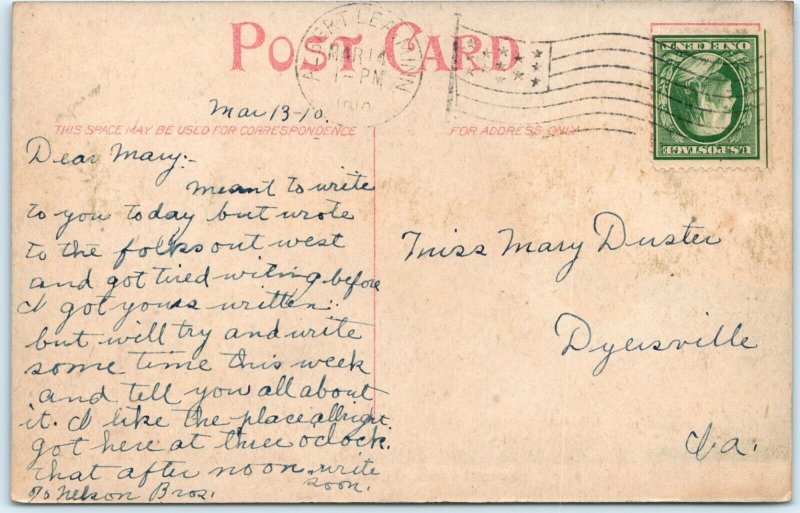 POST CARD
ALBERT LEA MINN
MAR 14
1-PM
1910
ONE CENT
U.S. POSTAGE
Mar 13-10.
THIS SPACE MAY BE USED FOR CORRESPONDENCE
FOR ADDRESS ONLY
Dear Mary:-
Meant to write
to you today but wrote
to the folks out west
and got tired writing before
I got yours written.
but will try and write
some time this week
and tell you all about
it. I like the place allright.
got here at three o'clock.
that after noon write
soon.
c/o Nelson Bros.
Miss Mary Duster
Dyersville
Ia.